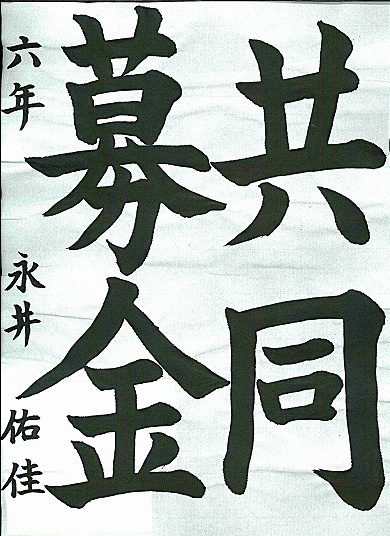 共同
募金
六年 永井 佑佳